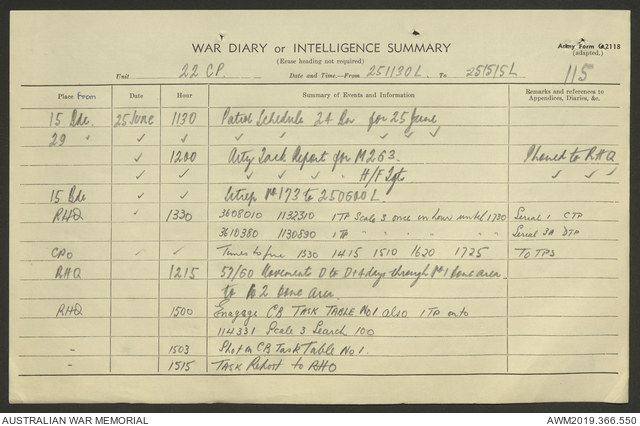 WAR DIARY or INTELLIGENCE SUMMARY
Army Form C2118
(adapted.)
(Erase heading not required)
Unit 22 CP. Date and Time.—From 251130L To 251515L 115
Place from Date Hour Summary of Events and Information Remarks and references to Appendices, Diaries, &c.
15 Bde. 25 June 1130 Patrol Schedule 24 for 25 June
29 " ✓ ✓ ✓ " ✓ ✓ ✓
✓ 1200 Arty Task Report for M263. Phoned to RHQ
✓ ✓ ✓ ✓ ✓ " H/F Tgts ✓ ✓ ✓
15 Bde ✓ ✓ Sitrep No 173 to 250600L
RHQ ✓ 1330 3608010 1132310 1 TP Scale 3 once on hour until 1730 Serial 1 CTP
3610380 1130890 1 TP " " " " " Serial 3A DTP
CPO ✓ ✓ Times to fire 1330 1415 1510 1620 1725 To TPS
RHQ 1215 57/60 Movements D to D+4 days through No 1 area
to No 2 area.
RHQ 1500 Engage CB TASK TABLE No1 also 1 TP onto
114331 Scale 3 Search 100
- 1503 Shot on CB Task Table No 1.
- 1515 TASK Report to RHQ
AUSTRALIAN WAR MEMORIAL AWM2019.366.550